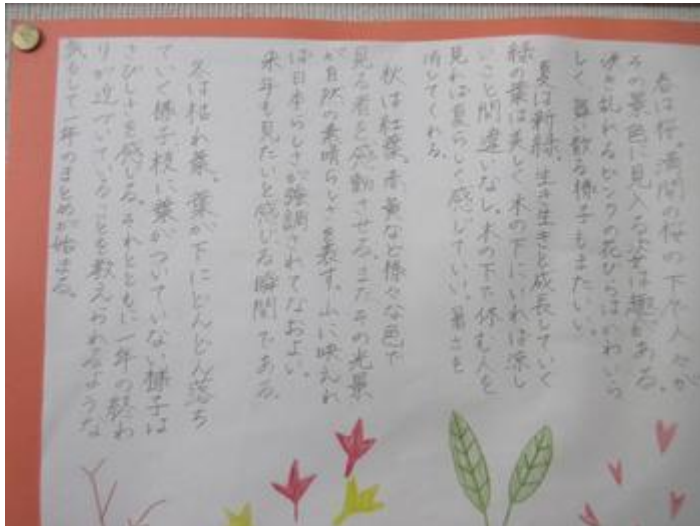 春は桜。満開の桜の下で人々が
その景色に見入る姿は趣がある。
咲き乱れるピンクの花びらはかわいら
しく舞い散る様子もまたいい。
夏は新緑。生き生きと成長していく
緑の葉は美しく木の下にいれば涼し
いこと間違いなし。木の下で休む人を
見れば夏らしく感じていい。暑さを
消してくれる。
秋は紅葉。赤黄など様々な色で
見る者を感動させる。またその光景
が自然の素晴らしさを表す。山に映えれ
ば日本らしさが強調されてなおよい。
来年も見たいと感じる瞬間である。
冬は枯れ葉。葉が下にどんどん落ち
ていく様子、枝に葉がついていない様子は
さびしさを感じる。それとともに一年の終わ
りが近づいていることを教えられるような
気もして一年のまとめが始まる。